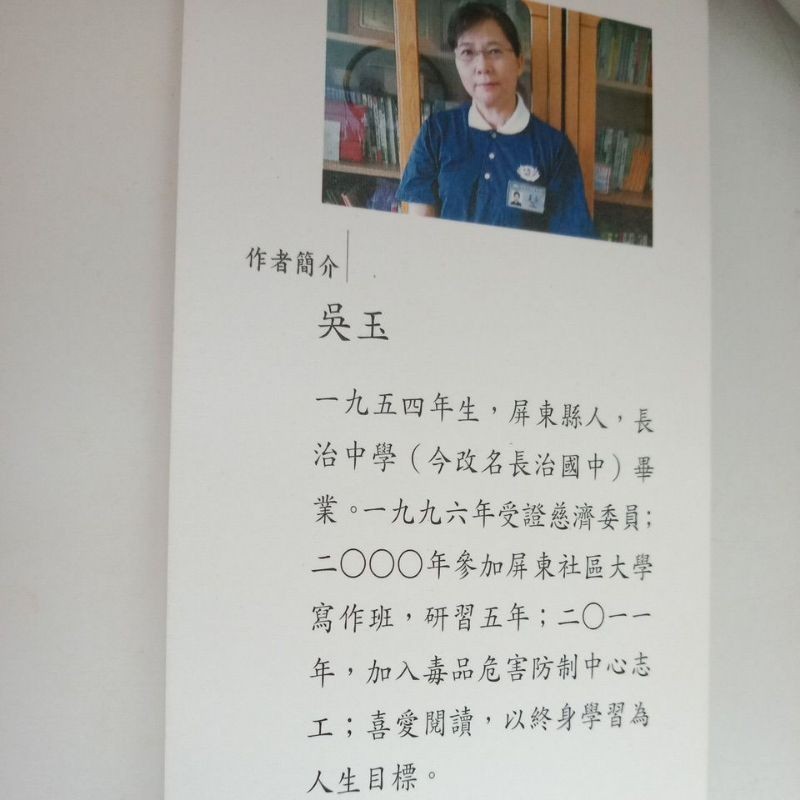 作者簡介
吳玉
一九五四年生，屏東縣人，長
治中學（今改名長治國中）畢
業。一九九六年受證慈濟委員；
二〇〇〇年參加屏東社區大學
寫作班，研習五年；二〇一一
年，加入毒品危害防制中心志
工；喜愛閱讀，以終身學習為
人生目標。